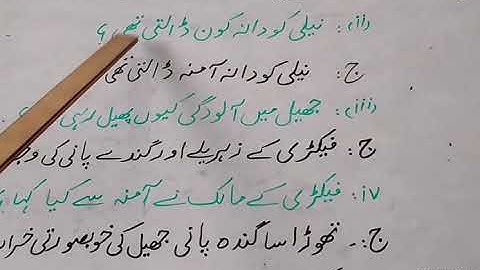 (ii): نیلی کو دانہ کون ڈالتی تھی ؟
ج: نیلی کو دانہ آمنہ ڈالتی تھی
(iii): جھیل میں آلودگی کیوں پھیل رہی
ج: فیکٹری کے زہریلے اور گندے پانی کی
iv: فیکٹری کے مالک نے آمنہ سے کیا کہا
ج:۔ تھوڑا سا گندہ پانی جھیل کی خوبصورتی